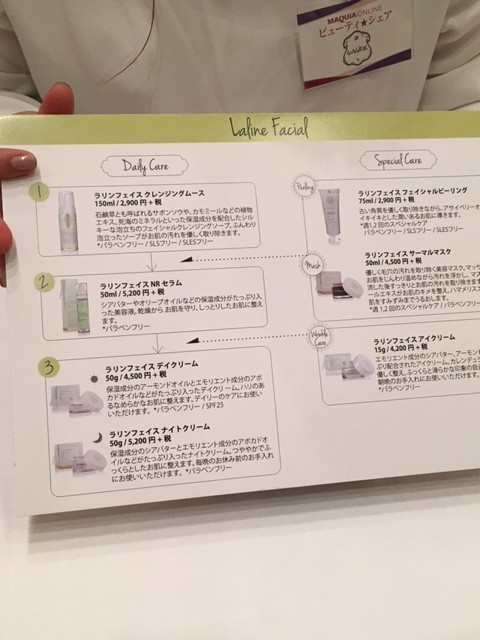 MAQUIA ONLINE
ビューティ★シェア
Laline
Laline Facial
Daily Care
Special Care
1
ラリンフェイス クレンジングムース
150ml / 2,900円+税
石鹸類とも呼ばれるサボンソウや、カモミールなどの植物
エキス、死海のミネラルといった保湿成分を配合したシル
キーな泡立ちのフェイシャルクレンジングソープ。ふんわり
泡立ったソープがお肌の汚れを優しく取り除きます。
*パラベンフリー / SLSフリー / SLESフリー
2
ラリンフェイス NR セラム
50ml / 5,200円+税
シアバターやオリーブオイルなどの保湿成分がたっぷり入
った美容液。乾燥から お肌を守り、しっとりしたお肌に整え
ます。
*パラベンフリー
3
ラリンフェイス デイクリーム
50g / 4,500円+税
保湿成分のアーモンドオイルとエモリエント成分のアボ
カドオイルなどがたっぷり入ったデイクリーム。ハリのあ
るなめらかなお肌に整えます。デイリーのケアにお使い
いただけます。 *パラベンフリー / SPF25
ラリンフェイス ナイトクリーム
50g / 5,200円+税
保湿成分のシアバターとエモリエント成分のアボカドオ
イルなどがたっぷり入ったナイトクリーム。つややかでふ
っくらとしたお肌に整えます。毎晩のお休み前のお手入れ
にお使いいただけます。 *パラベンフリー
Peeling
ラリンフェイス フェイシャルピーリング
75ml / 2,900円+税
古い角質を優しく取り除きながら、アサイベリーオ
イキイキとした潤いあるお肌に導きます。
*週1,2回のスペシャルケア
パラベンフリー / SLSフリー / SLESフリー
Mask
ラリンフェイス サーマルマスク
50ml / 4,500円+税
優しく毛穴の汚れを取り除く美容マスク。マッサ
お肌をじんわり温めながら汚れを浮かし、マス
流した後すっきりとお肌の汚れを取り除きます
ールエキスがお肌のキメを整え、ハマメリス
肌をすみずみまでうるおします。
*週1,2回のスペシャルケア / パラベンフリー
Wrinkle Care
ラリンフェイス アイクリーム
15g / 4,200円+税
エモリエント成分のシアバター、アーモンド
ぷり配合されたアイクリーム。カレンデュラ
優しく整え、ふっくらと滑らかな印象の目元
朝晩のお手入れにお使いいただけます。